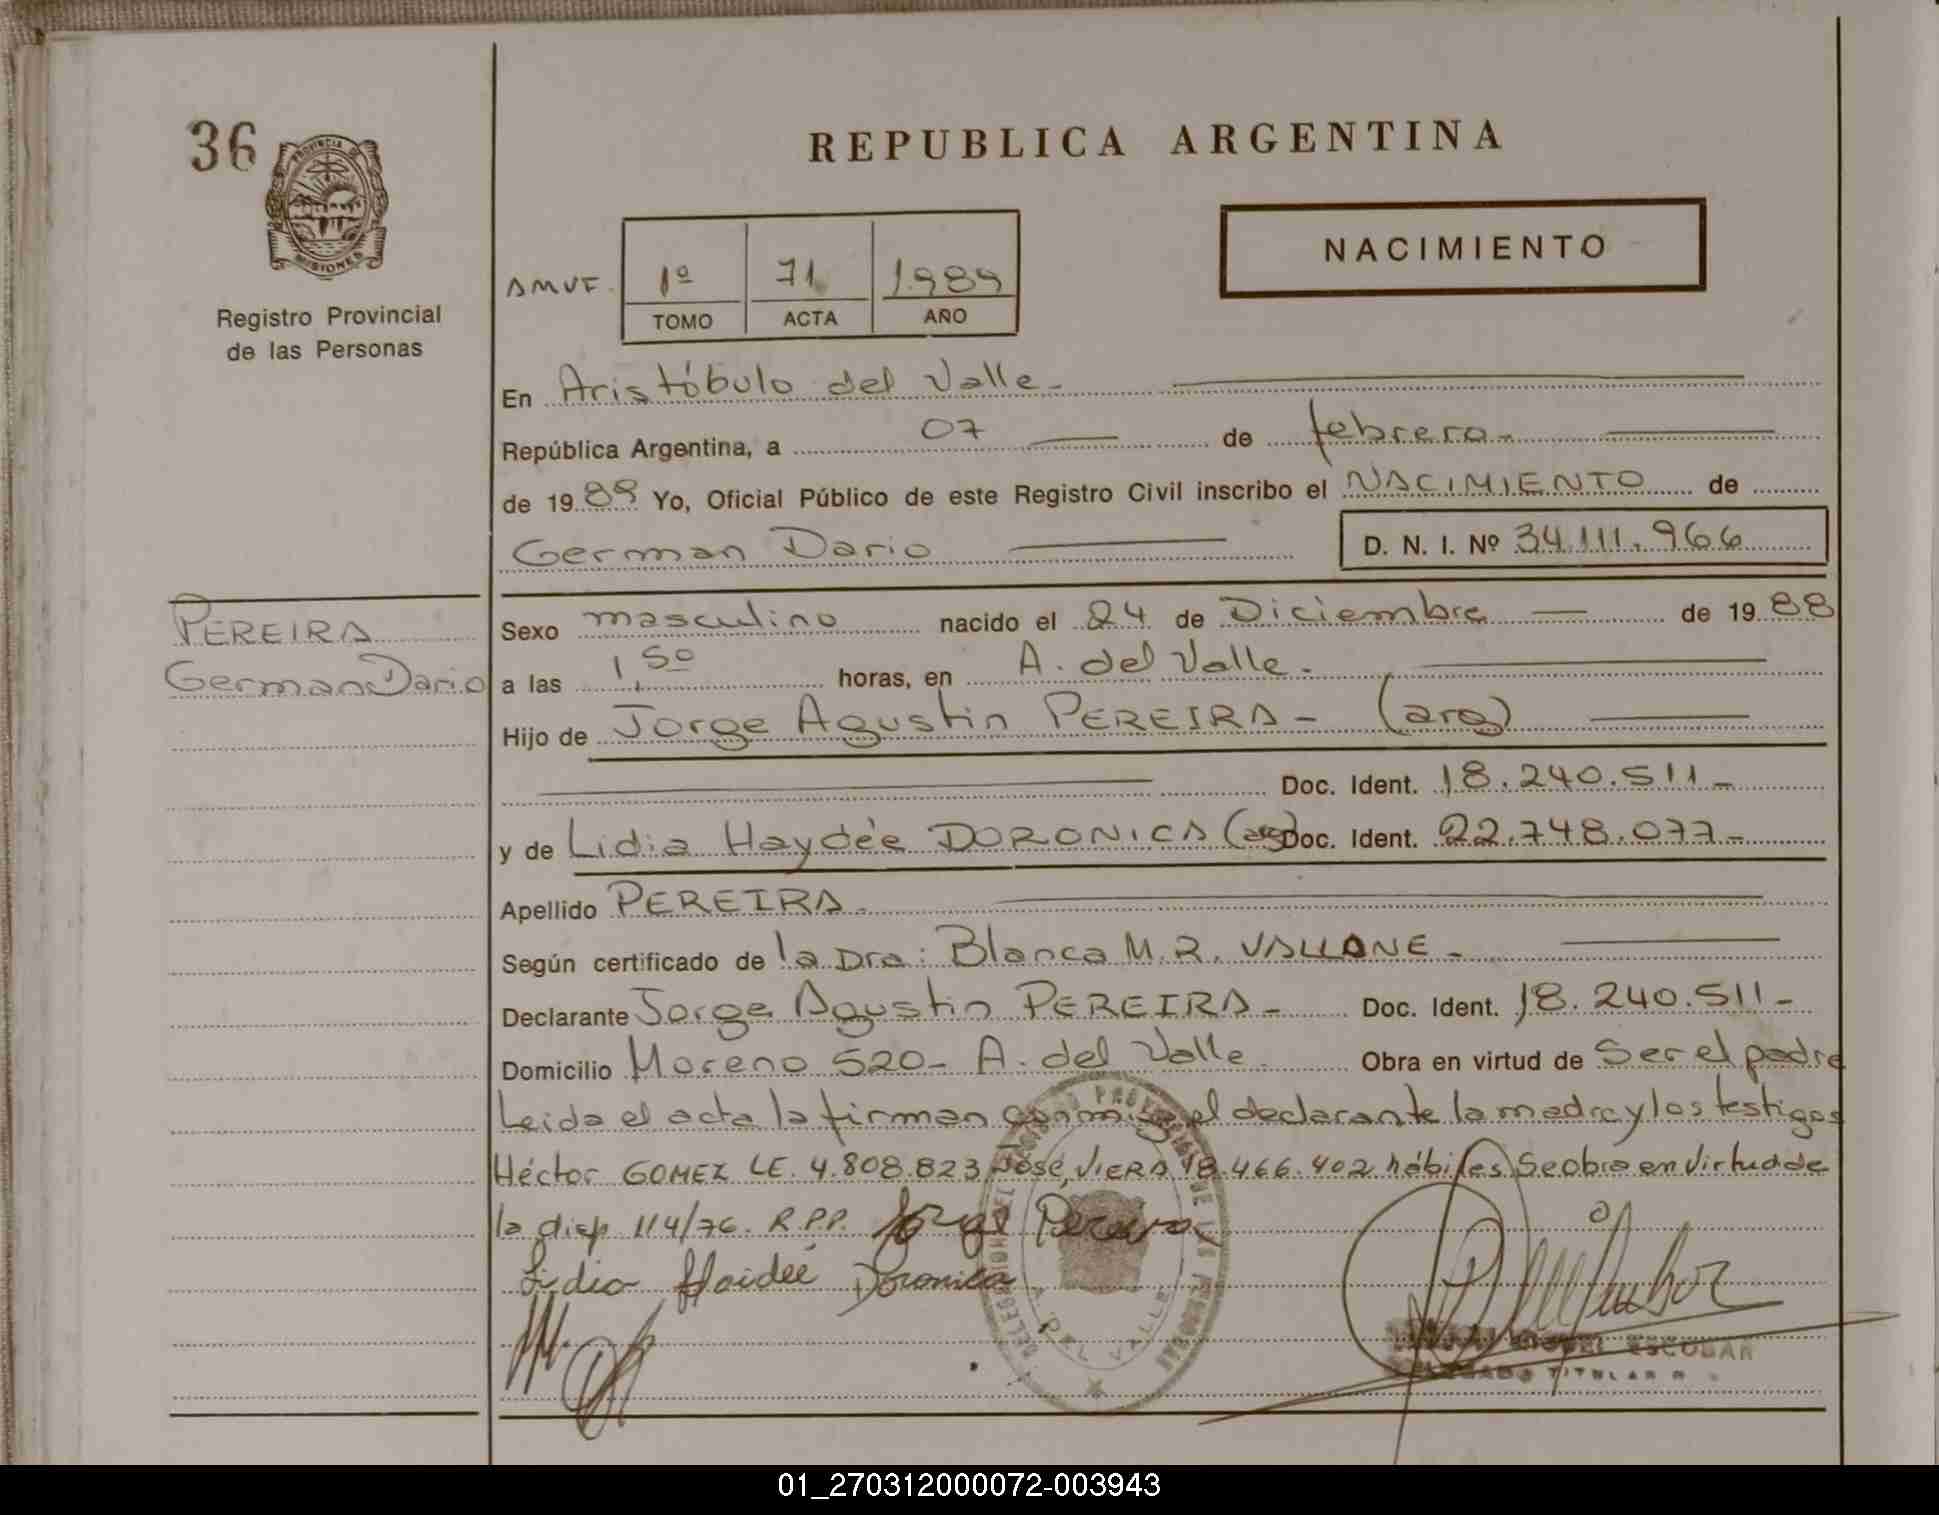 36
PROVINCIA DE
MISIONES
Registro Provincial
de las Personas
REPUBLICA ARGENTINA
NACIMIENTO
AMVF. 1º 71 1989
TOMO ACTA AÑO
En Aristóbulo del Valle-
República Argentina, a 07 de febrero-
de 1989 Yo, Oficial Público de este Registro Civil inscribo el NACIMIENTO de
German Dario D. N. I. Nº 34.111.966
PEREIRA
German Dario
Sexo masculino nacido el 24 de Diciembre de 1988
a las 1,50 horas, en A. del Valle.
Hijo de Jorge Agustin PEREIRA- (arg)
Doc. Ident. 18.240.511-
y de Lidia Haydée DORONICA (arg) Doc. Ident. 22.748.077-
Apellido PEREIRA.
Según certificado de la Dra: Blanca M.R. VALLONE-
Declarante Jorge Agustin PEREIRA- Doc. Ident. 18.240.511-
Domicilio Moreno 520- A. del Valle. Obra en virtud de Ser el padre
Leida el acta la firman conmigo el declarante la madre y los testigos
Héctor GOMEZ LE. 4.808.823 José, VIERA 18.466.402 hábiles Se obra en virtud de
la disp 114/76. R.P.P. Jorge Pereira
Lidia Haidée Doronica
DEL VALLE
MIGUEL ESCOBAR
DELEGADO TITULAR
01_270312000072-003943